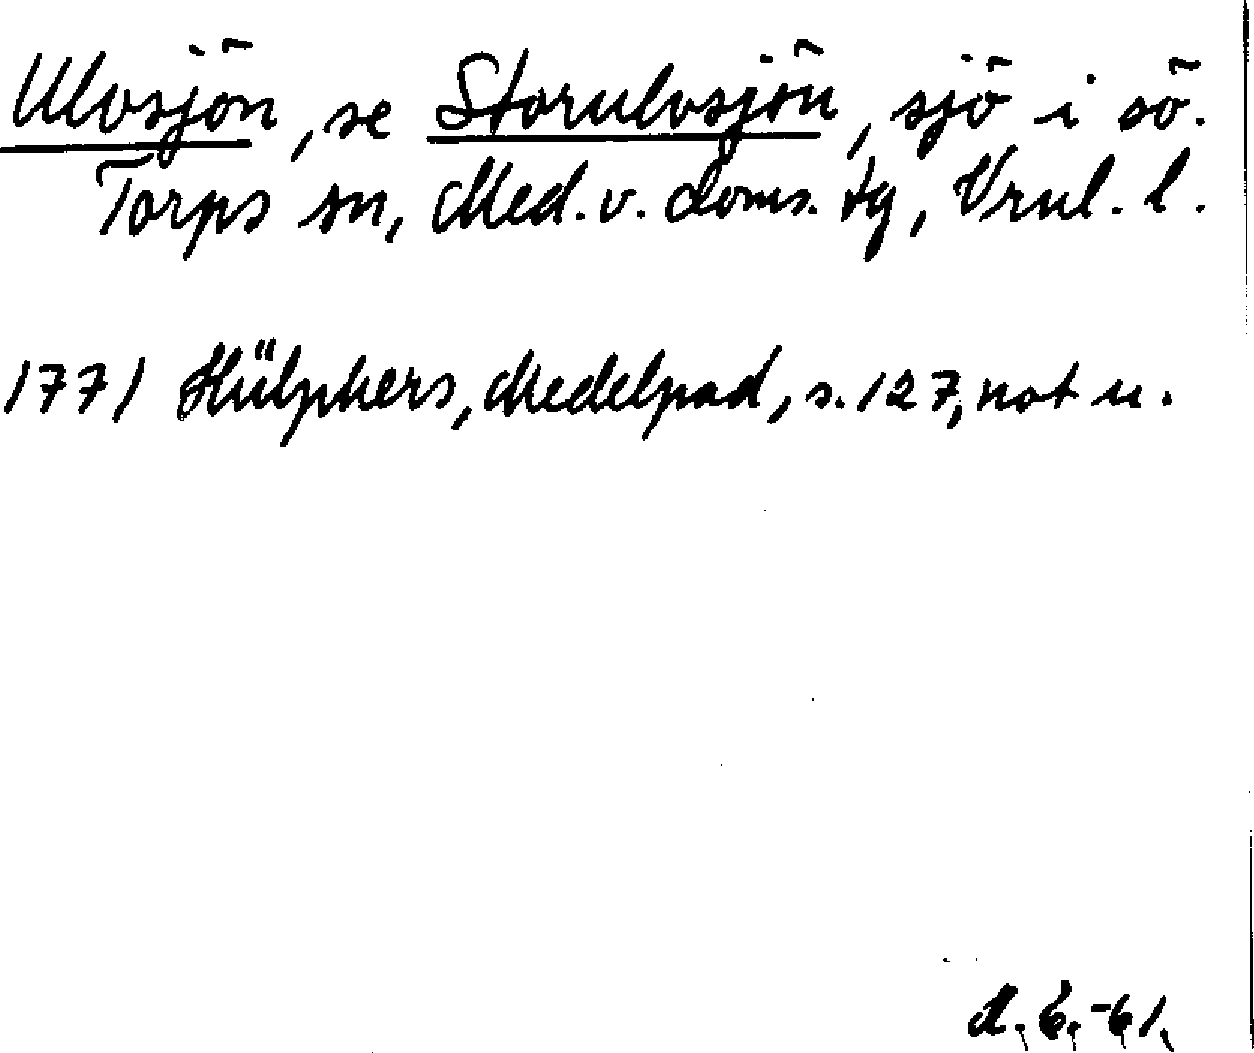 Ulvsjön, se Storulvsjön, sjö i sö.
Torps sn, Med. v. doms. tg, Vrnl. l.
1771 Hülphers, Medelpad, s. 127, not u.